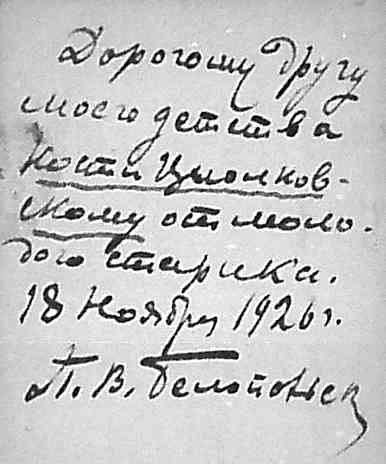 Дорогому другу
моего детства
Кости Циолков-
скому от моло-
дого старика.
18 Ноября 1926 г.
П. В.